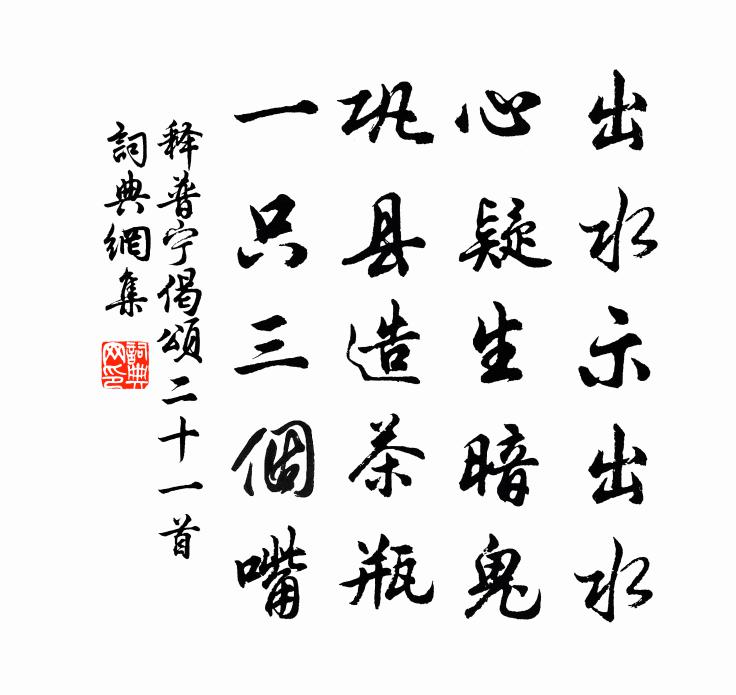 出水示出水
心疑生暗鬼
巩县造茶瓶
一只三個嘴
释普宁偈頌二十一首
詞典網集
詞典网印